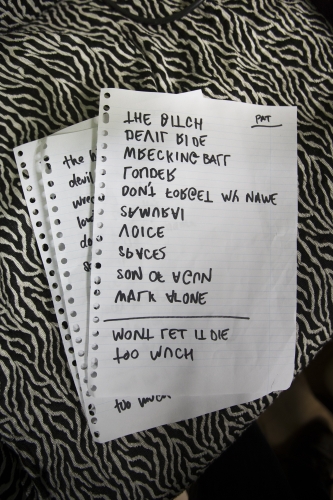 PAT
THE BITCH
DEVIL RIDE
WRECKING BALL
LOUDER
DON'T FORGET MY NAME
SAMURAI
VOICE
SPACES
SON OF A GUN
WALK ALONE
WON'T LET IT DIE
TOO MUCH
TOO MUCH
the b
devil
wre
lou
do